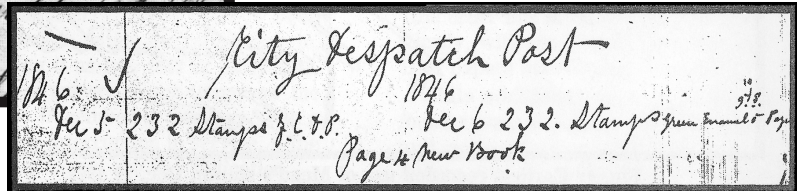 City Despatch Post
1846. 1846
Dec 5 232 Stamps f. C. D. P. Dec 6 232. Stamps green Enamel
Page 4 New Book